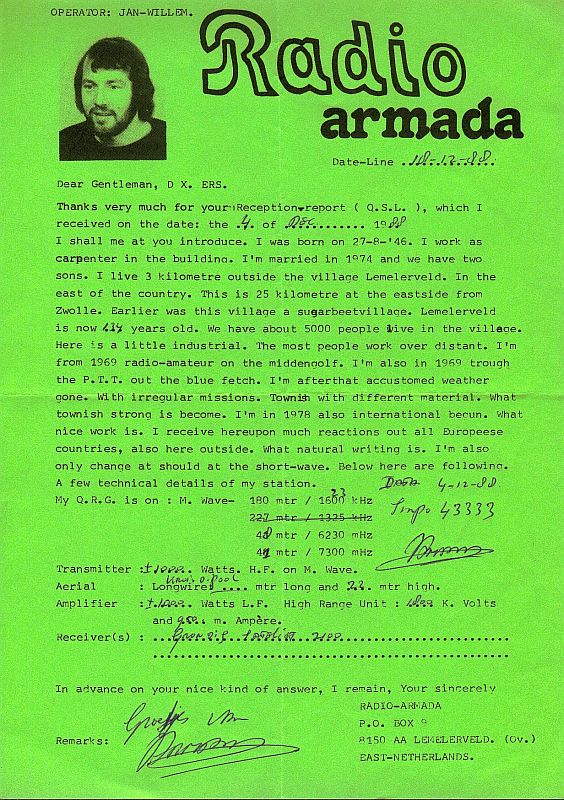 OPERATOR: JAN-WILLEM.
Radio
armada
Date-Line ..18-12-88.
Dear Gentleman, D X. ERS.
Thanks very much for your Reception-report ( Q.S.L. ), which I
received on the date: the .4. of .DEC......... 1988
I shall me at you introduce. I was born on 27-8-'46. I work as
carpenter in the building. I'm married in 1974 and we have two
sons. I live 3 kilometre outside the village Lemelerveld. In the
east of the country. This is 25 kilometre at the eastside from
Zwolle. Earlier was this village a sugarbeetvillage. Lemelerveld
is now years old. We have about 5000 people live in the village.
Here is a little industrial. The most people work over distant. I'm
from 1969 radio-amateur on the middengolf. I'm also in 1969 trough
the P.T.T. out the blue fetch. I'm afterthat accustomed weather
gone. With irregular missions. Townish with different material. What
townish strong is become. I'm in 1978 also international becun. What
nice work is. I receive hereupon much reactions out all Europeese
countries, also here outside. What natural writing is. I'm also
only change at should at the short-wave. Below here are following.
A few technical details of my station. DATA 4-12-88.
My Q.R.G. is on : M. Wave- 180 mtr / 1600 kHz
23
Sinpo 43333
227 mtr / 1325 kHz
48 mtr / 6230 mHz
41 mtr / 7300 mHz
Transmitter :±1000. Watts. H.F. on M. Wave.
Aerial : Longwire: .... mtr long and 22. mtr high.
Amplifier : ±1000. Watts L.F. High Range Unit : K. Volts
and m. Ampère.
Receiver(s) : Satellit
In advance on your nice kind of answer, I remain, Your sincerely
Groetjes van
RADIO-ARMADA
P.O. BOX 9
Remarks:
8150 AA LEMELERVELD. (Ov.)
EAST-NETHERLANDS.